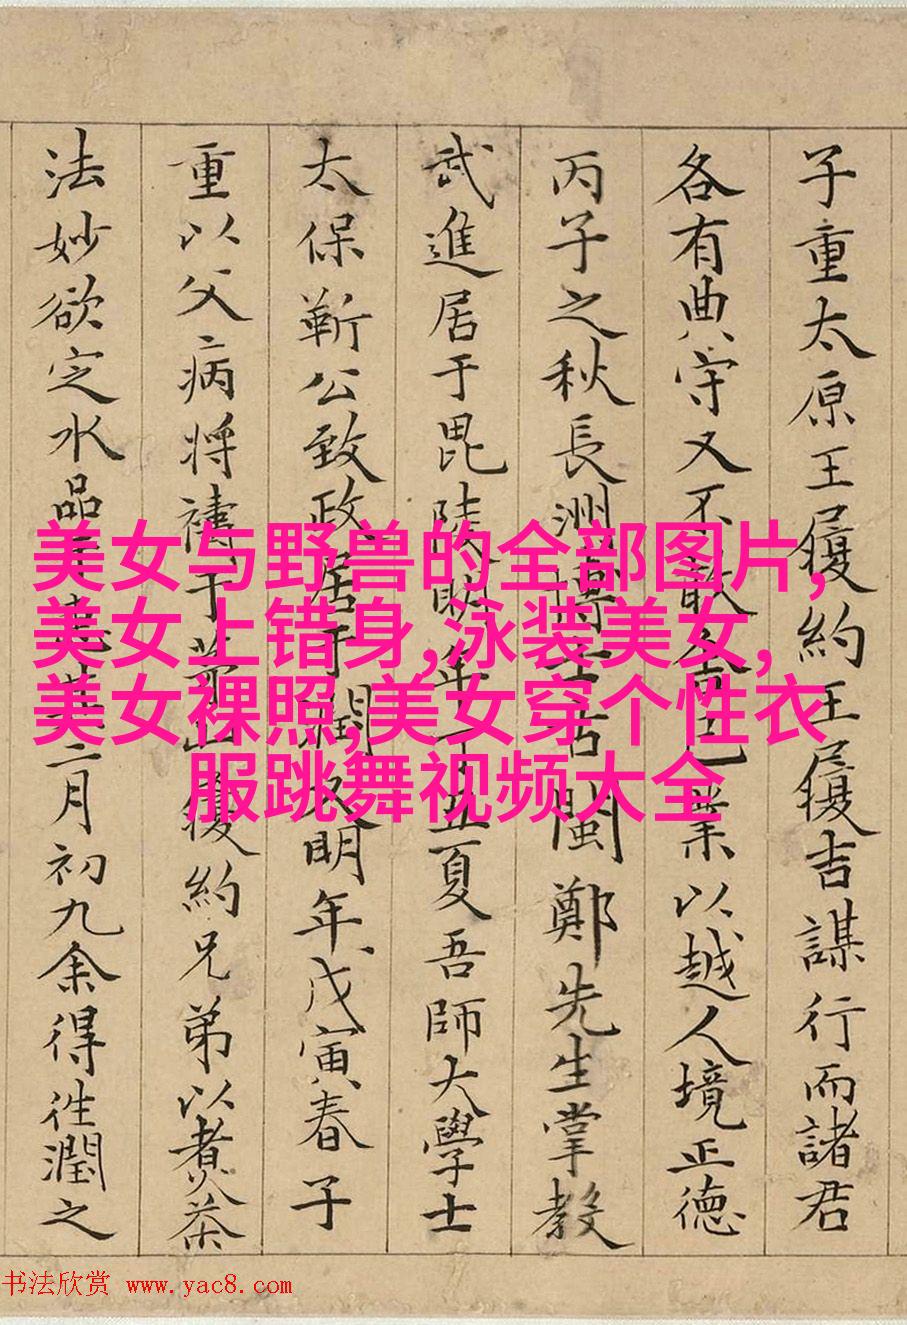 子重太原王履約王履吉謀行而諸君
各有典守又不敢舍己業以越人境正德
丙子之秋長洲博士古閩鄭先生掌教
武進居于毘陵明年丁丑夏吾師大學士
太保靳公致政居于潤又明年戊寅春子
重以父病將禱于茅山復約兄弟以煮茶
法妙欲定水品于惠其二月初九余得往潤之
美女与野兽的全部图片,
美女上错身,泳装美女,
美女裸照,美女穿个性衣
服跳舞视频大全
书法欣赏 www.yac8.com